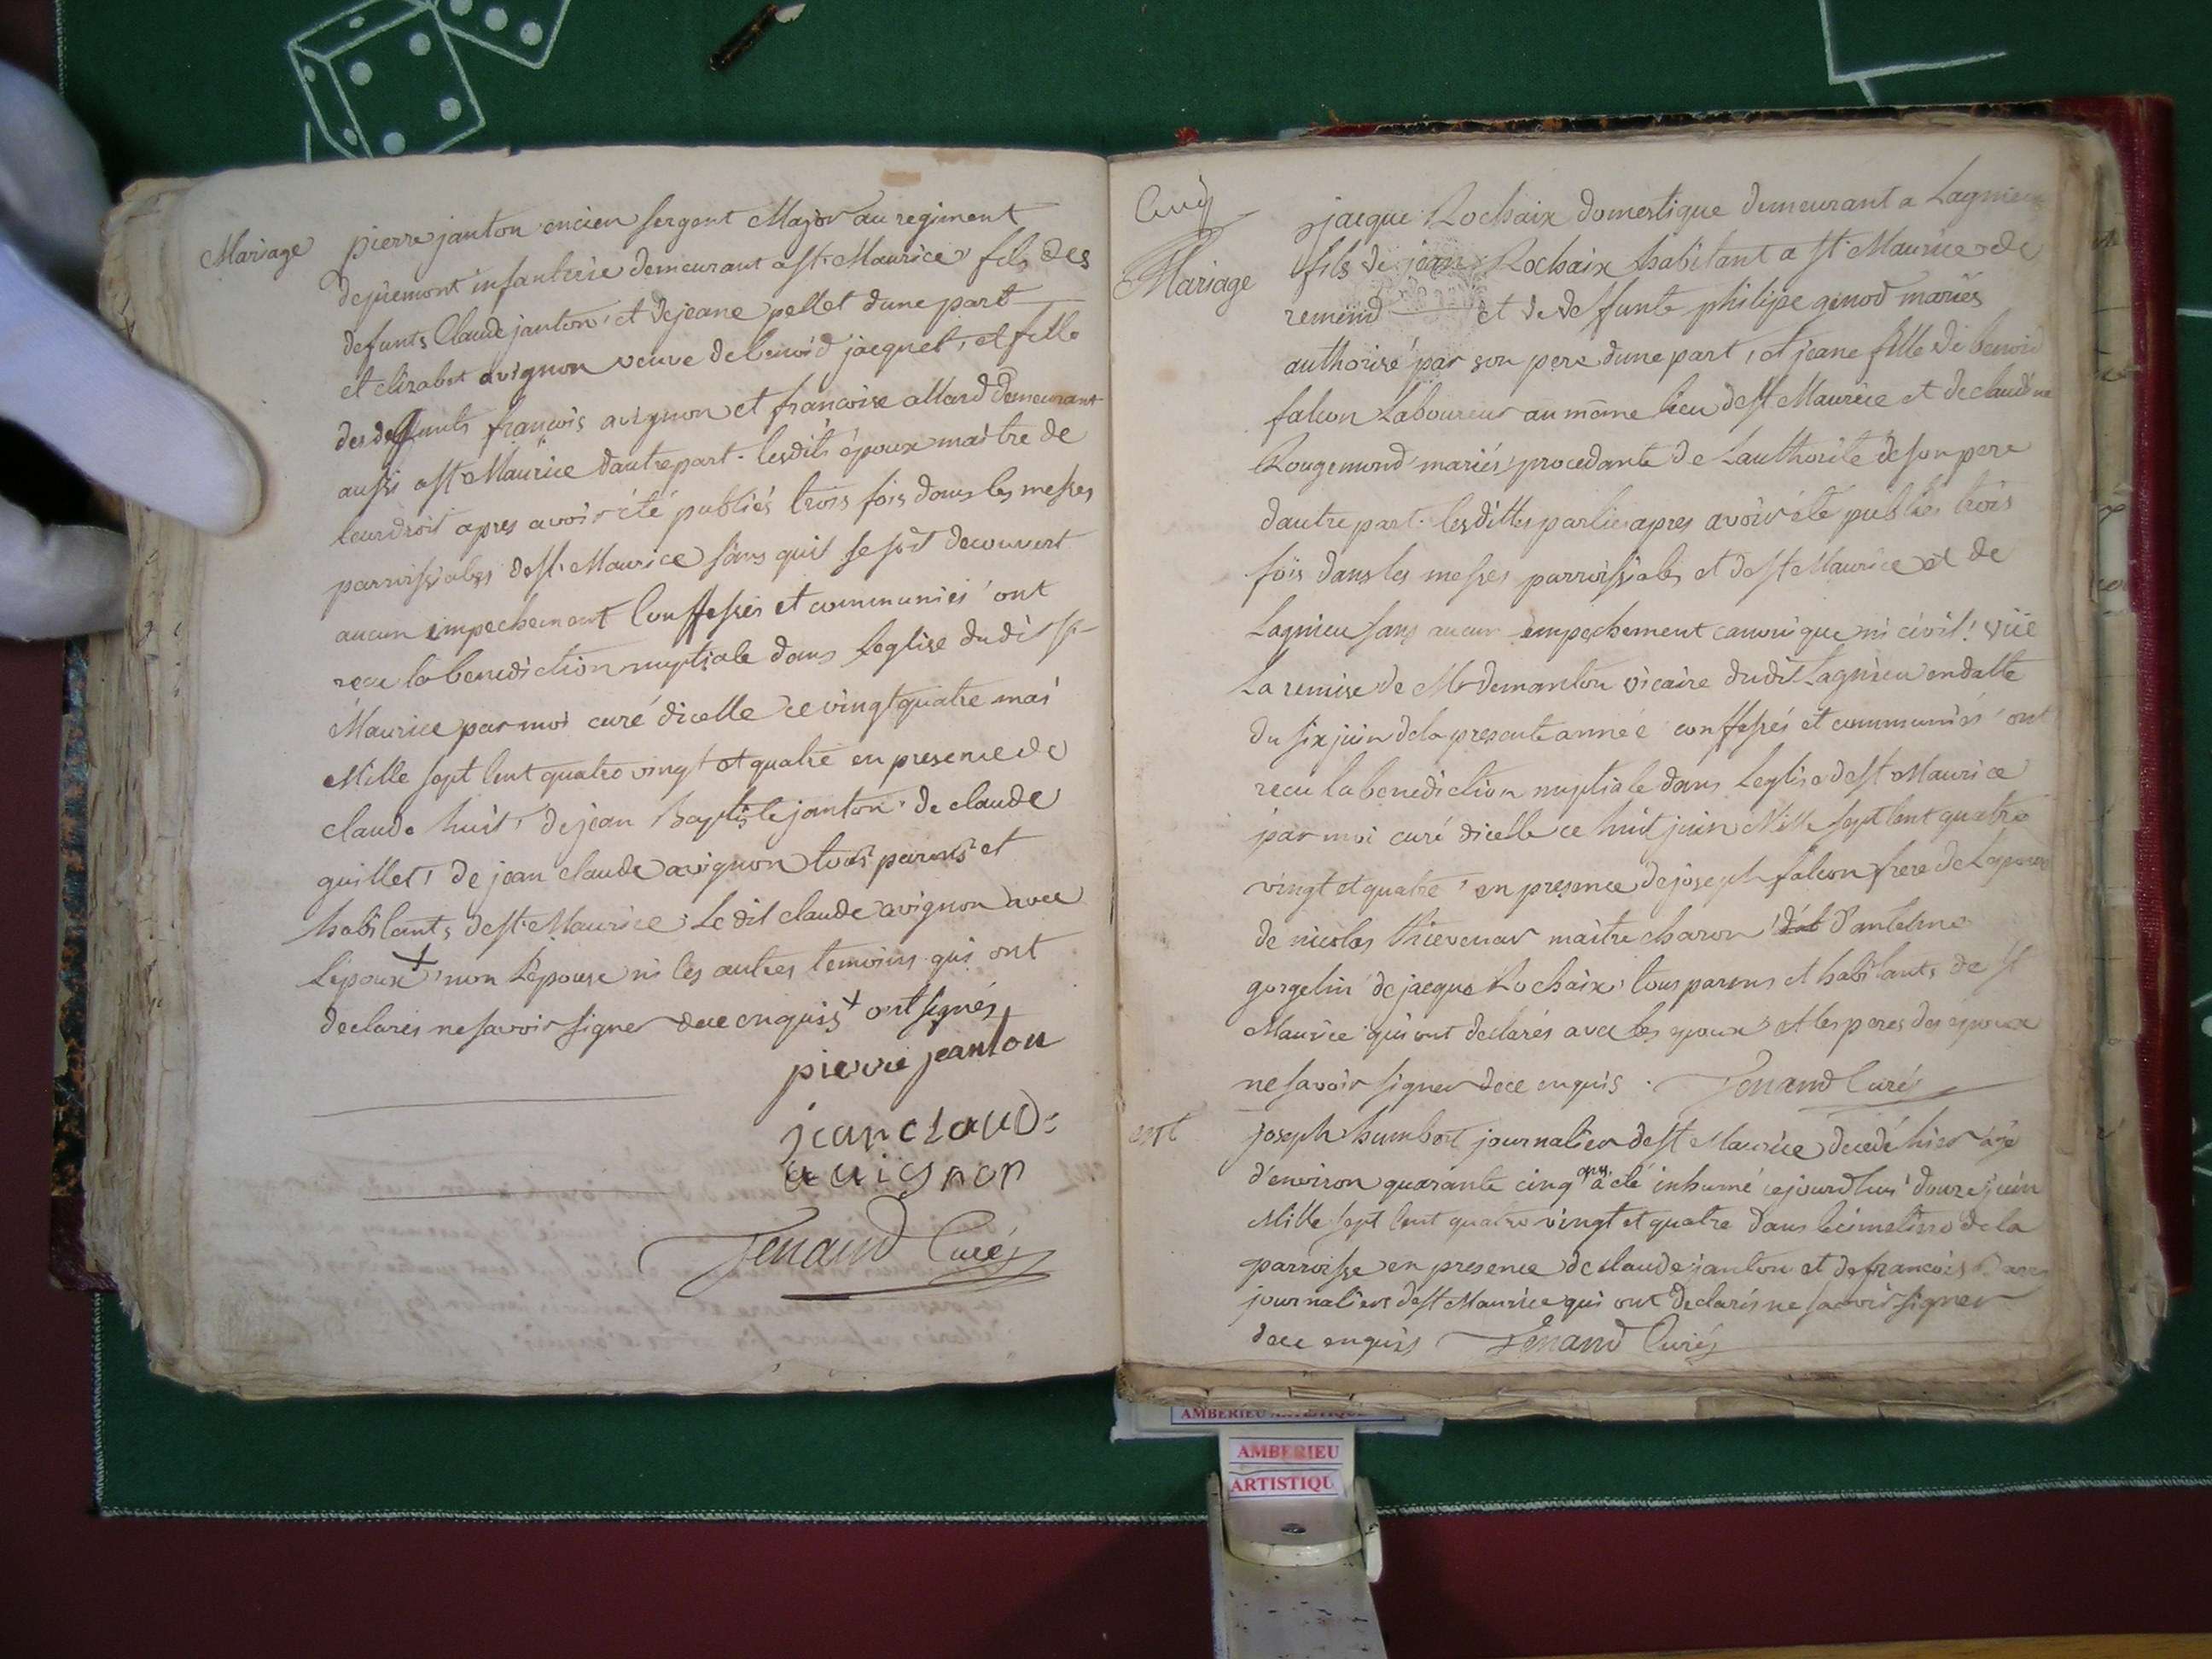 Mariage
pierre janton encien sergent Major au regiment
de piemont infanterie demeurant a st. Maurice fils des
defunts Claude janton et de jeane pellet dune part
et elizabet avignon veuve de benoid jacquet, et fille
des deffunts françois avignon et francoise allard demeurant
aussi a st Maurice dautre part. lesdits époux maitre de
leur droit apres avoir été publiés trois fois dans les messes
parroissiales de st. Maurice sans quil se soit decouvert
aucun empechement Confessés et communiés ont
recu la benediction nuptiale dans Leglise dudit st
Maurice par moi curé dicelle ce vingt quatre mai
Mille sept Cent quatre vingt et quatre en presence de
claude huit, de jean baptiste janton, de claude
guillet, de jean claude avignon tous parens et
habitants de st. Maurice. Le dit claude avignon avec
Lepoux + non Lépouse ni les autres temoins qui ont
declarés ne savoir signer de ce enquis + ont signés
pierre jeanton
jean claude
auignon
Tenand Curé
Mariage
jacque Rochaix domestique demeurant a Lagnieu
fils de jean Rochaix habitant a st Maurice de
remend et de deffunte philipe ginod mariés
authorisé par son pere dune part, et jeane fille de benoid
falcon Laboureur au même lieu de st Maurice et de claudine
Rougemond mariés procedante de Lauthorité de son pere
dautre part. lesdittes parties apres avoir été publiés trois
fois dans les messes parroissiales et de st Maurice et de
Lagnieu sans aucun empechement canonique ni civil! vüe
La remise de Mr demanton vicaire dudit Lagnieu en datte
du six juin de la presente année confessés et communiés ont
recu la benediction nuptiale dans Leglise de st Maurice
par moi curé dicelle ce huit juin Mille sept Cent quatre
vingt et quatre, en presence de joseph falcon frere de Lepouse
de nicolas thievenar maitre charon d'antelme
gorgelin de jacque Rochaix, tous parens et habitants de st
Maurice qui ont declarés avec les epoux et les peres des epoux
ne savoir signer de ce enquis. Tenand Curé
mort
joseph humbert journalier de st Maurice decedé hier agé
d'environ quarante cinq ans a été inhumé cejourdhui douze juin
Mille sept Cent quatre vingt et quatre dans le cimetiere de la
parroisse en presence de claude janton et de francois
journaliers de st Maurice qui ont declarés ne savoir signer
de ce enquis Tenand Curé
AMBERIEU ARTISTIQUE
AMBERIEU
ARTISTIQU